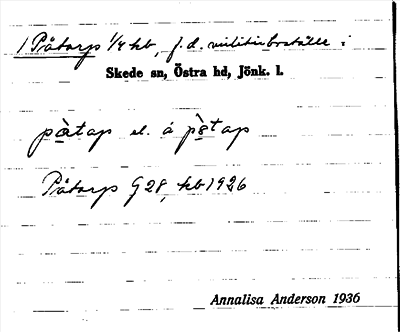 1 Påtorp 1/4 kb, f.d. militieboställe :
Skede sn, Östra hd, Jönk. l.
pàtap el. å pàtap
Påtorp G 28, kb 1926
Annalisa Anderson 1936